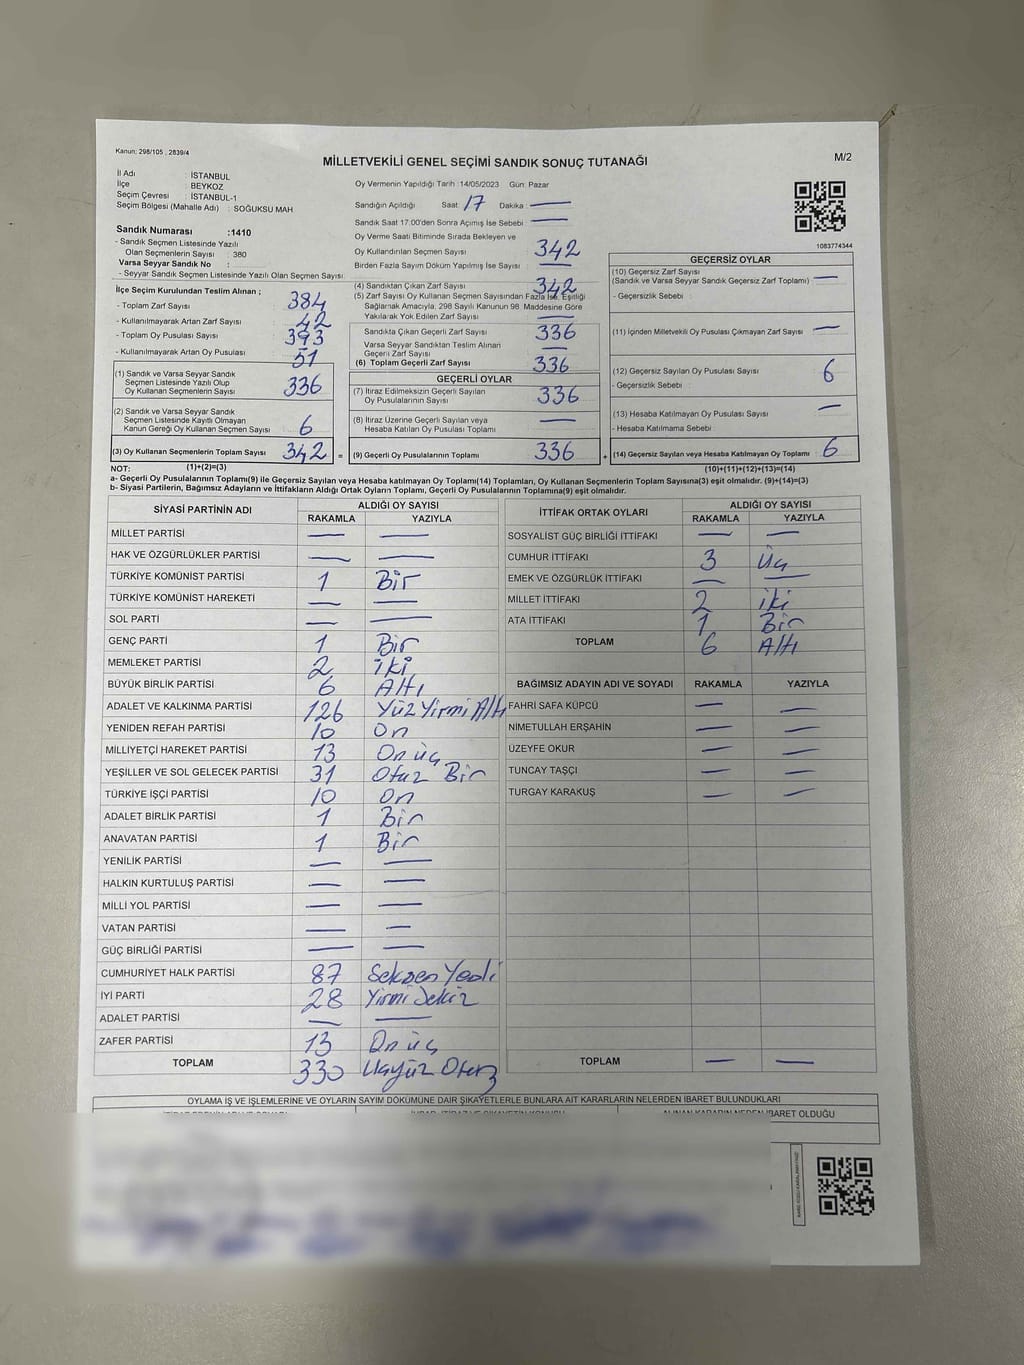 Kanun: 298/105 , 2839/4
MİLLETVEKİLİ GENEL SEÇİMİ SANDIK SONUÇ TUTANAĞI
M/2
İl Adı : İSTANBUL
İlçe : BEYKOZ
Seçim Çevresi : İSTANBUL-1
Seçim Bölgesi (Mahalle Adı) : SOĞUKSU MAH
Oy Vermenin Yapıldığı Tarih :14/05/2023 Gün: Pazar
Sandığın Açıldığı Saat: 17 Dakika : —
Sandık Saat 17:00'den Sonra Açımış İse Sebebi : —
1083774344
Sandık Numarası :1410
- Sandık Seçmen Listesinde Yazılı
Olan Seçmenlerin Sayısı : 380
Varsa Seyyar Sandık No :
- Seyyar Sandık Seçmen Listesinde Yazılı Olan Seçmen Sayısı:
Oy Verme Saati Bitiminde Sırada Bekleyen ve
Oy Kullandırılan Seçmen Sayısı : 342
Birden Fazla Sayım Döküm Yapılmış İse Sayısı : —
İlçe Seçim Kurulundan Teslim Alınan ;
- Toplam Zarf Sayısı : 384
- Kullanılmayarak Artan Zarf Sayısı : 42
- Toplam Oy Pusulası Sayısı : 393
- Kullanılmayarak Artan Oy Pusulası : 51
(1) Sandık ve Varsa Seyyar Sandık
Seçmen Listesinde Yazılı Olup
Oy Kullanan Seçmenlerin Sayısı : 336
(2) Sandık ve Varsa Seyyar Sandık
Seçmen Listesinde Kayıtlı Olmayan
Kanun Gereği Oy Kullanan Seçmen Sayısı : 6
(3) Oy Kullanan Seçmenlerin Toplam Sayısı : 342 =
(4) Sandıktan Çıkan Zarf Sayısı : 342
(5) Zarf Sayısı Oy Kullanan Seçmen Sayısından Fazla İse, Eşitliği
Sağlamak Amacıyla, 298 Sayılı Kanunun 98. Maddesine Göre
Yakılarak Yok Edilen Zarf Sayısı : —
Sandıkta Çıkan Geçerli Zarf Sayısı : 336
Varsa Seyyar Sandıktan Teslim Alınan
Geçerli Zarf Sayısı : —
(6) Toplam Geçerli Zarf Sayısı : 336
GEÇERLİ OYLAR
(7) İtiraz Edilmeksizin Geçerli Sayılan
Oy Pusulalarının Sayısı : 336
(8) İtiraz Üzerine Geçerli Sayılan veya
Hesaba Katılan Oy Pusulası Toplamı : —
(9) Geçerli Oy Pusulalarının Toplamı : 336 +
GEÇERSİZ OYLAR
(10) Geçersiz Zarf Sayısı
(Sandık ve Varsa Seyyar Sandık Geçersiz Zarf Toplamı) : —
- Geçersizlik Sebebi :
(11) İçinden Milletvekili Oy Pusulası Çıkmayan Zarf Sayısı : —
(12) Geçersiz Sayılan Oy Pusulası Sayısı : 6
- Geçersizlik Sebebi :
(13) Hesaba Katılmayan Oy Pusulası Sayısı : —
- Hesaba Katılmama Sebebi :
(14) Geçersiz Sayılan veya Hesaba Katılmayan Oy Toplamı : 6
NOT: (1)+(2)=(3) (10)+(11)+(12)+(13)=(14)
a- Geçerli Oy Pusulalarının Toplamı(9) ile Geçersiz Sayılan veya Hesaba Katılmayan Oy Toplamı(14) Toplamları, Oy Kullanan Seçmenlerin Toplam Sayısına(3) eşit olmalıdır. (9)+(14)=(3)
b- Siyasi Partilerin, Bağımsız Adayların ve İttifakların Aldığı Ortak Oyların Toplamı, Geçerli Oy Pusulalarının Toplamına(9) eşit olmalıdır.
SİYASİ PARTİNİN ADI ALDIĞI OY SAYISI
RAKAMLA YAZIYLA
MİLLET PARTİSİ — —
HAK VE ÖZGÜRLÜKLER PARTİSİ — —
TÜRKİYE KOMÜNİST PARTİSİ 1 Bir
TÜRKİYE KOMÜNİST HAREKETİ — —
SOL PARTİ — —
GENÇ PARTİ 1 Bir
MEMLEKET PARTİSİ 2 iki
BÜYÜK BİRLİK PARTİSİ 6 Altı
ADALET VE KALKINMA PARTİSİ 126 Yüz Yirmi Altı
YENİDEN REFAH PARTİSİ 10 On
MİLLİYETÇİ HAREKET PARTİSİ 13 On üç
YEŞİLLER VE SOL GELECEK PARTİSİ 31 Otuz Bir
TÜRKİYE İŞÇİ PARTİSİ 10 On
ADALET BİRLİK PARTİSİ 1 Bir
ANAVATAN PARTİSİ 1 Bir
YENİLİK PARTİSİ — —
HALKIN KURTULUŞ PARTİSİ — —
MİLLİ YOL PARTİSİ — —
VATAN PARTİSİ — —
GÜÇ BİRLİĞİ PARTİSİ — —
CUMHURİYET HALK PARTİSİ 87 Seksen Yedi
İYİ PARTİ 28 Yirmi Sekiz
ADALET PARTİSİ — —
ZAFER PARTİSİ 13 On üç
TOPLAM 330 Üçyüz Otuz
İTTİFAK ORTAK OYLARI ALDIĞI OY SAYISI
RAKAMLA YAZIYLA
SOSYALİST GÜÇ BİRLİĞİ İTTİFAKI — —
CUMHUR İTTİFAKI 3 Üç
EMEK VE ÖZGÜRLÜK İTTİFAKI — —
MİLLET İTTİFAKI 2 iki
ATA İTTİFAKI 1 Bir
TOPLAM 6 Altı
BAĞIMSIZ ADAYIN ADI VE SOYADI RAKAMLA YAZIYLA
FAHRİ SAFA KÜPCÜ — —
NİMETULLAH ERŞAHİN — —
ÜZEYFE OKUR — —
TUNCAY TAŞÇI — —
TURGAY KARAKUŞ — —
TOPLAM — —
OYLAMA İŞ VE İŞLEMLERİNE VE OYLARIN SAYIM DÖKÜMÜNE DAİR ŞİKAYETLERLE BUNLARA AİT KARARLARIN NELERDEN İBARET BULUNDUKLARI
ALINAN KARARIN NEDEN İBARET OLDUĞU